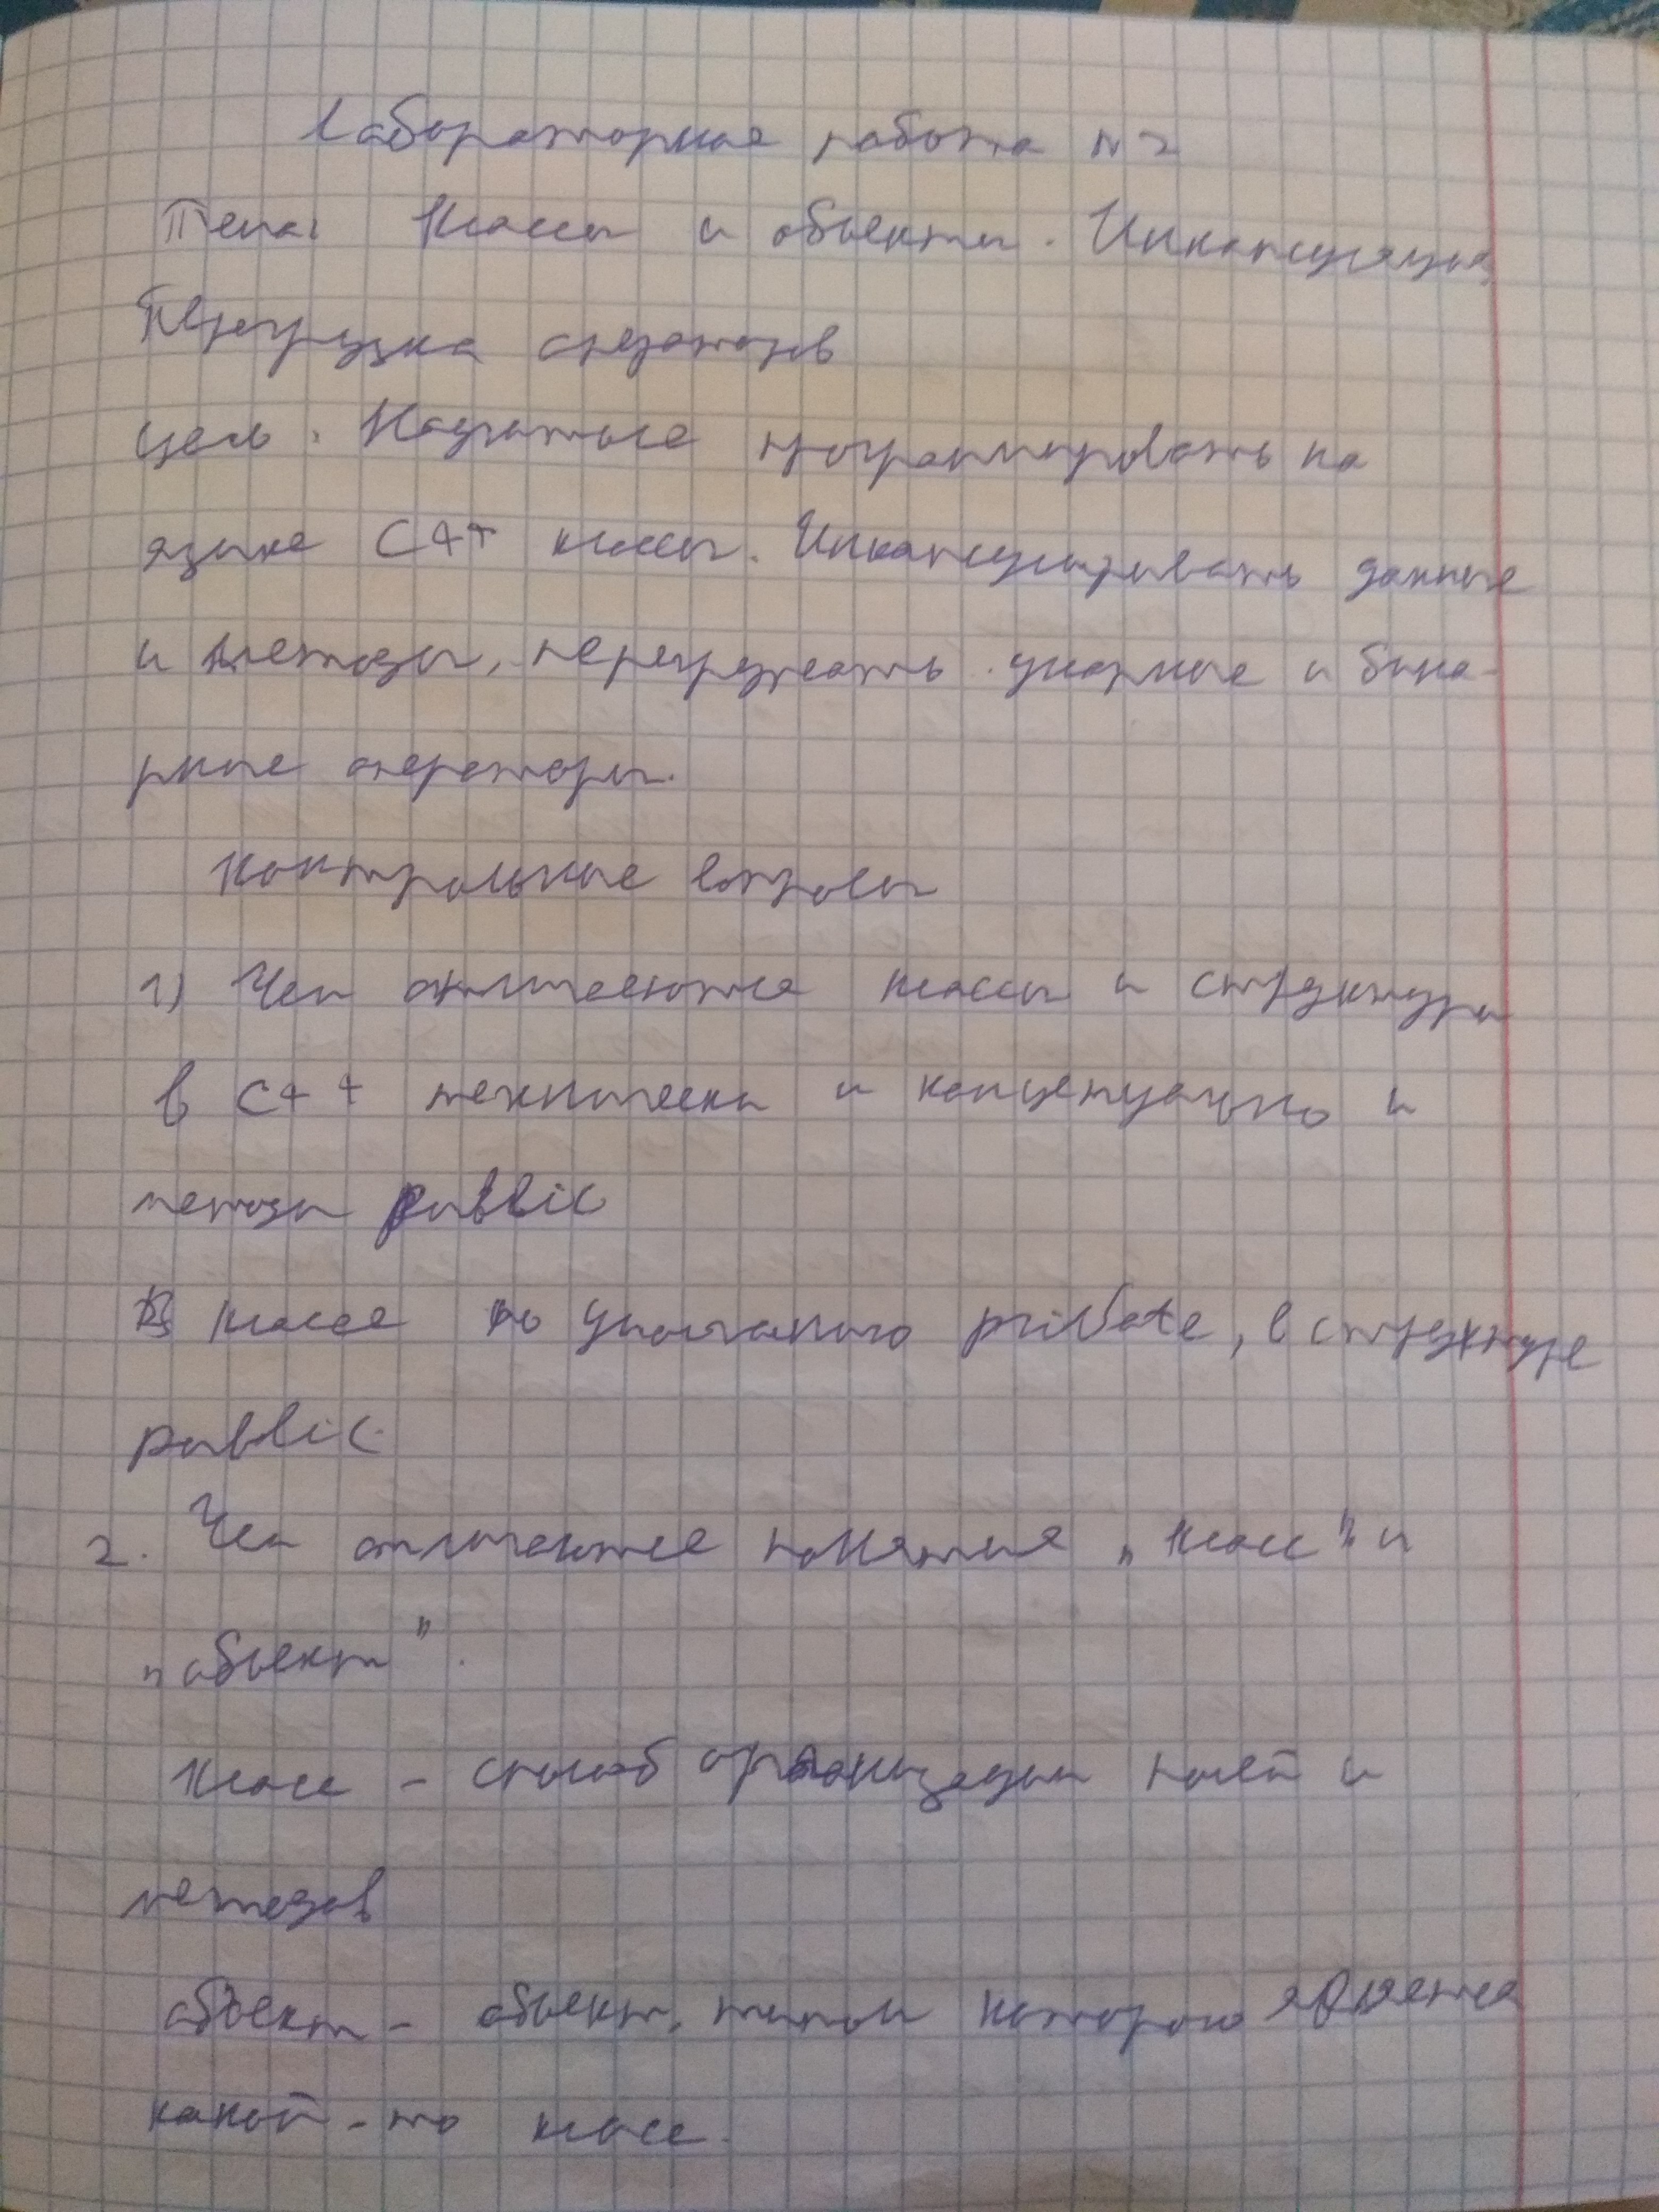 Лабораторная работа №2
Тема: Классы и объекты. Инкапсуляция,
Перегрузка операторов
Цель: Научиться программировать на
языке C++ классы. Инкапсулировать данные
и методы, перегружать унарные и бина-
рные операторы.
Контрольные вопросы
1) Чем отличаются классы и структуры
в C++ технически и концептуально и
методы public
В классе по умолчанию private, в структуре
public.
2. Чем отличаются понятия „класс" и
„объект".
Класс - способ организации полей и
методов
объект - объект, типом которого является
какой-то класс.